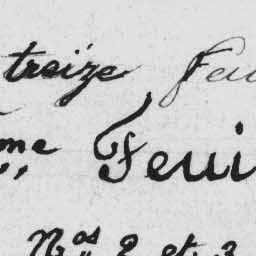 treize Feu
me Feui
Nos 2 et 3